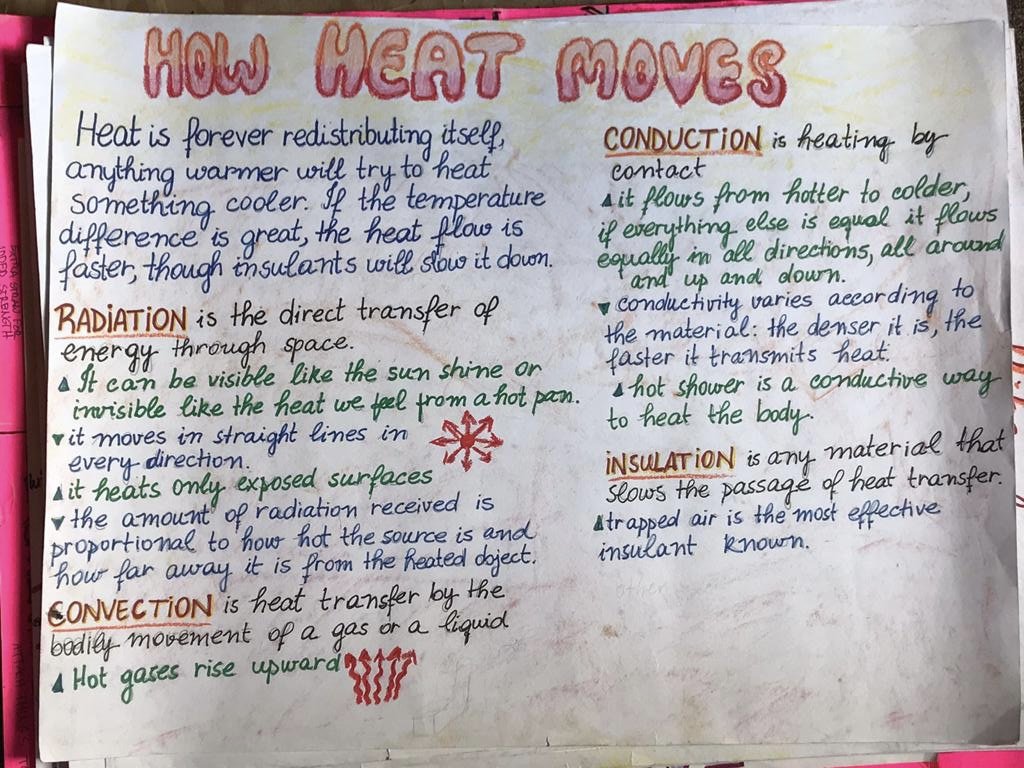 HOW HEAT MOVES
Heat is forever redistributing itself,
anything warmer will try to heat
something cooler. If the temperature
difference is great, the heat flow is
faster, though insulants will slow it down.
RADIATION is the direct transfer of
energy through space.
It can be visible like the sun shine or
invisible like the heat we feel from a hot pan.
it moves in straight lines in
every direction.
it heats only exposed surfaces
the amount of radiation received is
proportional to how hot the source is and
how far away it is from the heated object.
CONVECTION is heat transfer by the
bodily movement of a gas or a liquid
Hot gases rise upward
CONDUCTION is heating by
contact
it flows from hotter to colder,
if everything else is equal it flows
equally in all directions, all around
and up and down.
conductivity varies according to
the material: the denser it is, the
faster it transmits heat.
hot shower is a conductive way
to heat the body.
INSULATION is any material that
slows the passage of heat transfer.
trapped air is the most effective
insulant known.